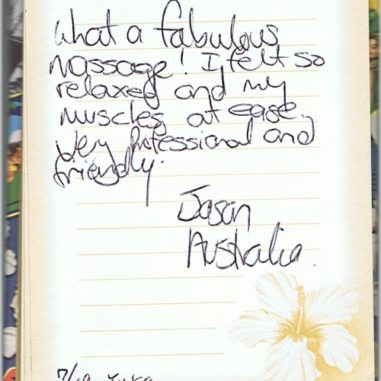 what a fabulous
massage! I felt so
relaxed and my
muscles at ease.
Very professional and
friendly.
Jason
Australia.